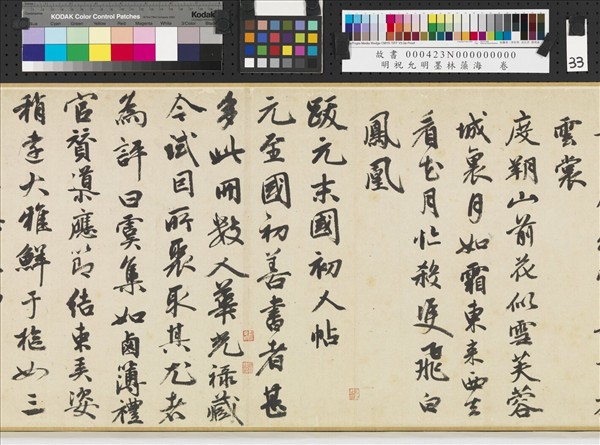 KODAK Color Control Patches
Kodak
故書 000423N000000000
明祝允明墨林藻海 卷
33
雲裳
度朔山前花似雪芙蓉
城裏月如霜東來西去
看花月忙殺雙飛白
鳳凰
跋元末國初人帖
元至國初善書者甚
多此冊數人華光祿藏
今試目所聚取其尤者
為評曰虞集如鹵簿禮
官贊導應節結束美姿
稍遠大雅鮮于樞如三